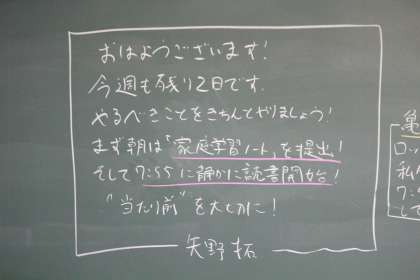 おはようございます!
今週も残り2日です.
やるべきことをきちんとやりましょう!
まず朝は「家庭学習ノート」を提出!
そして7:55に静かに読書開始!
"当たり前"を大切に!
矢野 拓
亀
ロッ
私
7:
して